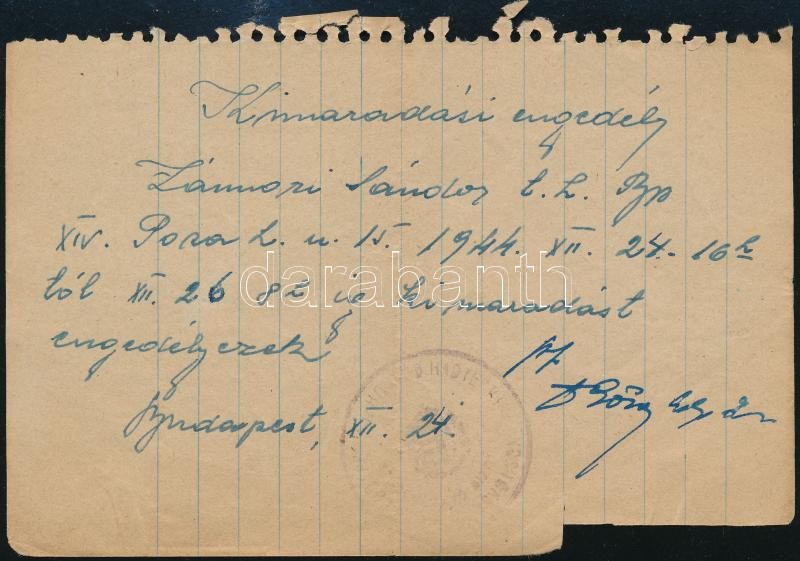 Kimaradási engedély
Zámori Sándor t. z. Bp
XIV. Posa L. u. 15. 1944. XII. 24. 16h
tól XII. 26 8h ig kimaradást
engedélyezek
Budapest, XII. 24.
darabanth